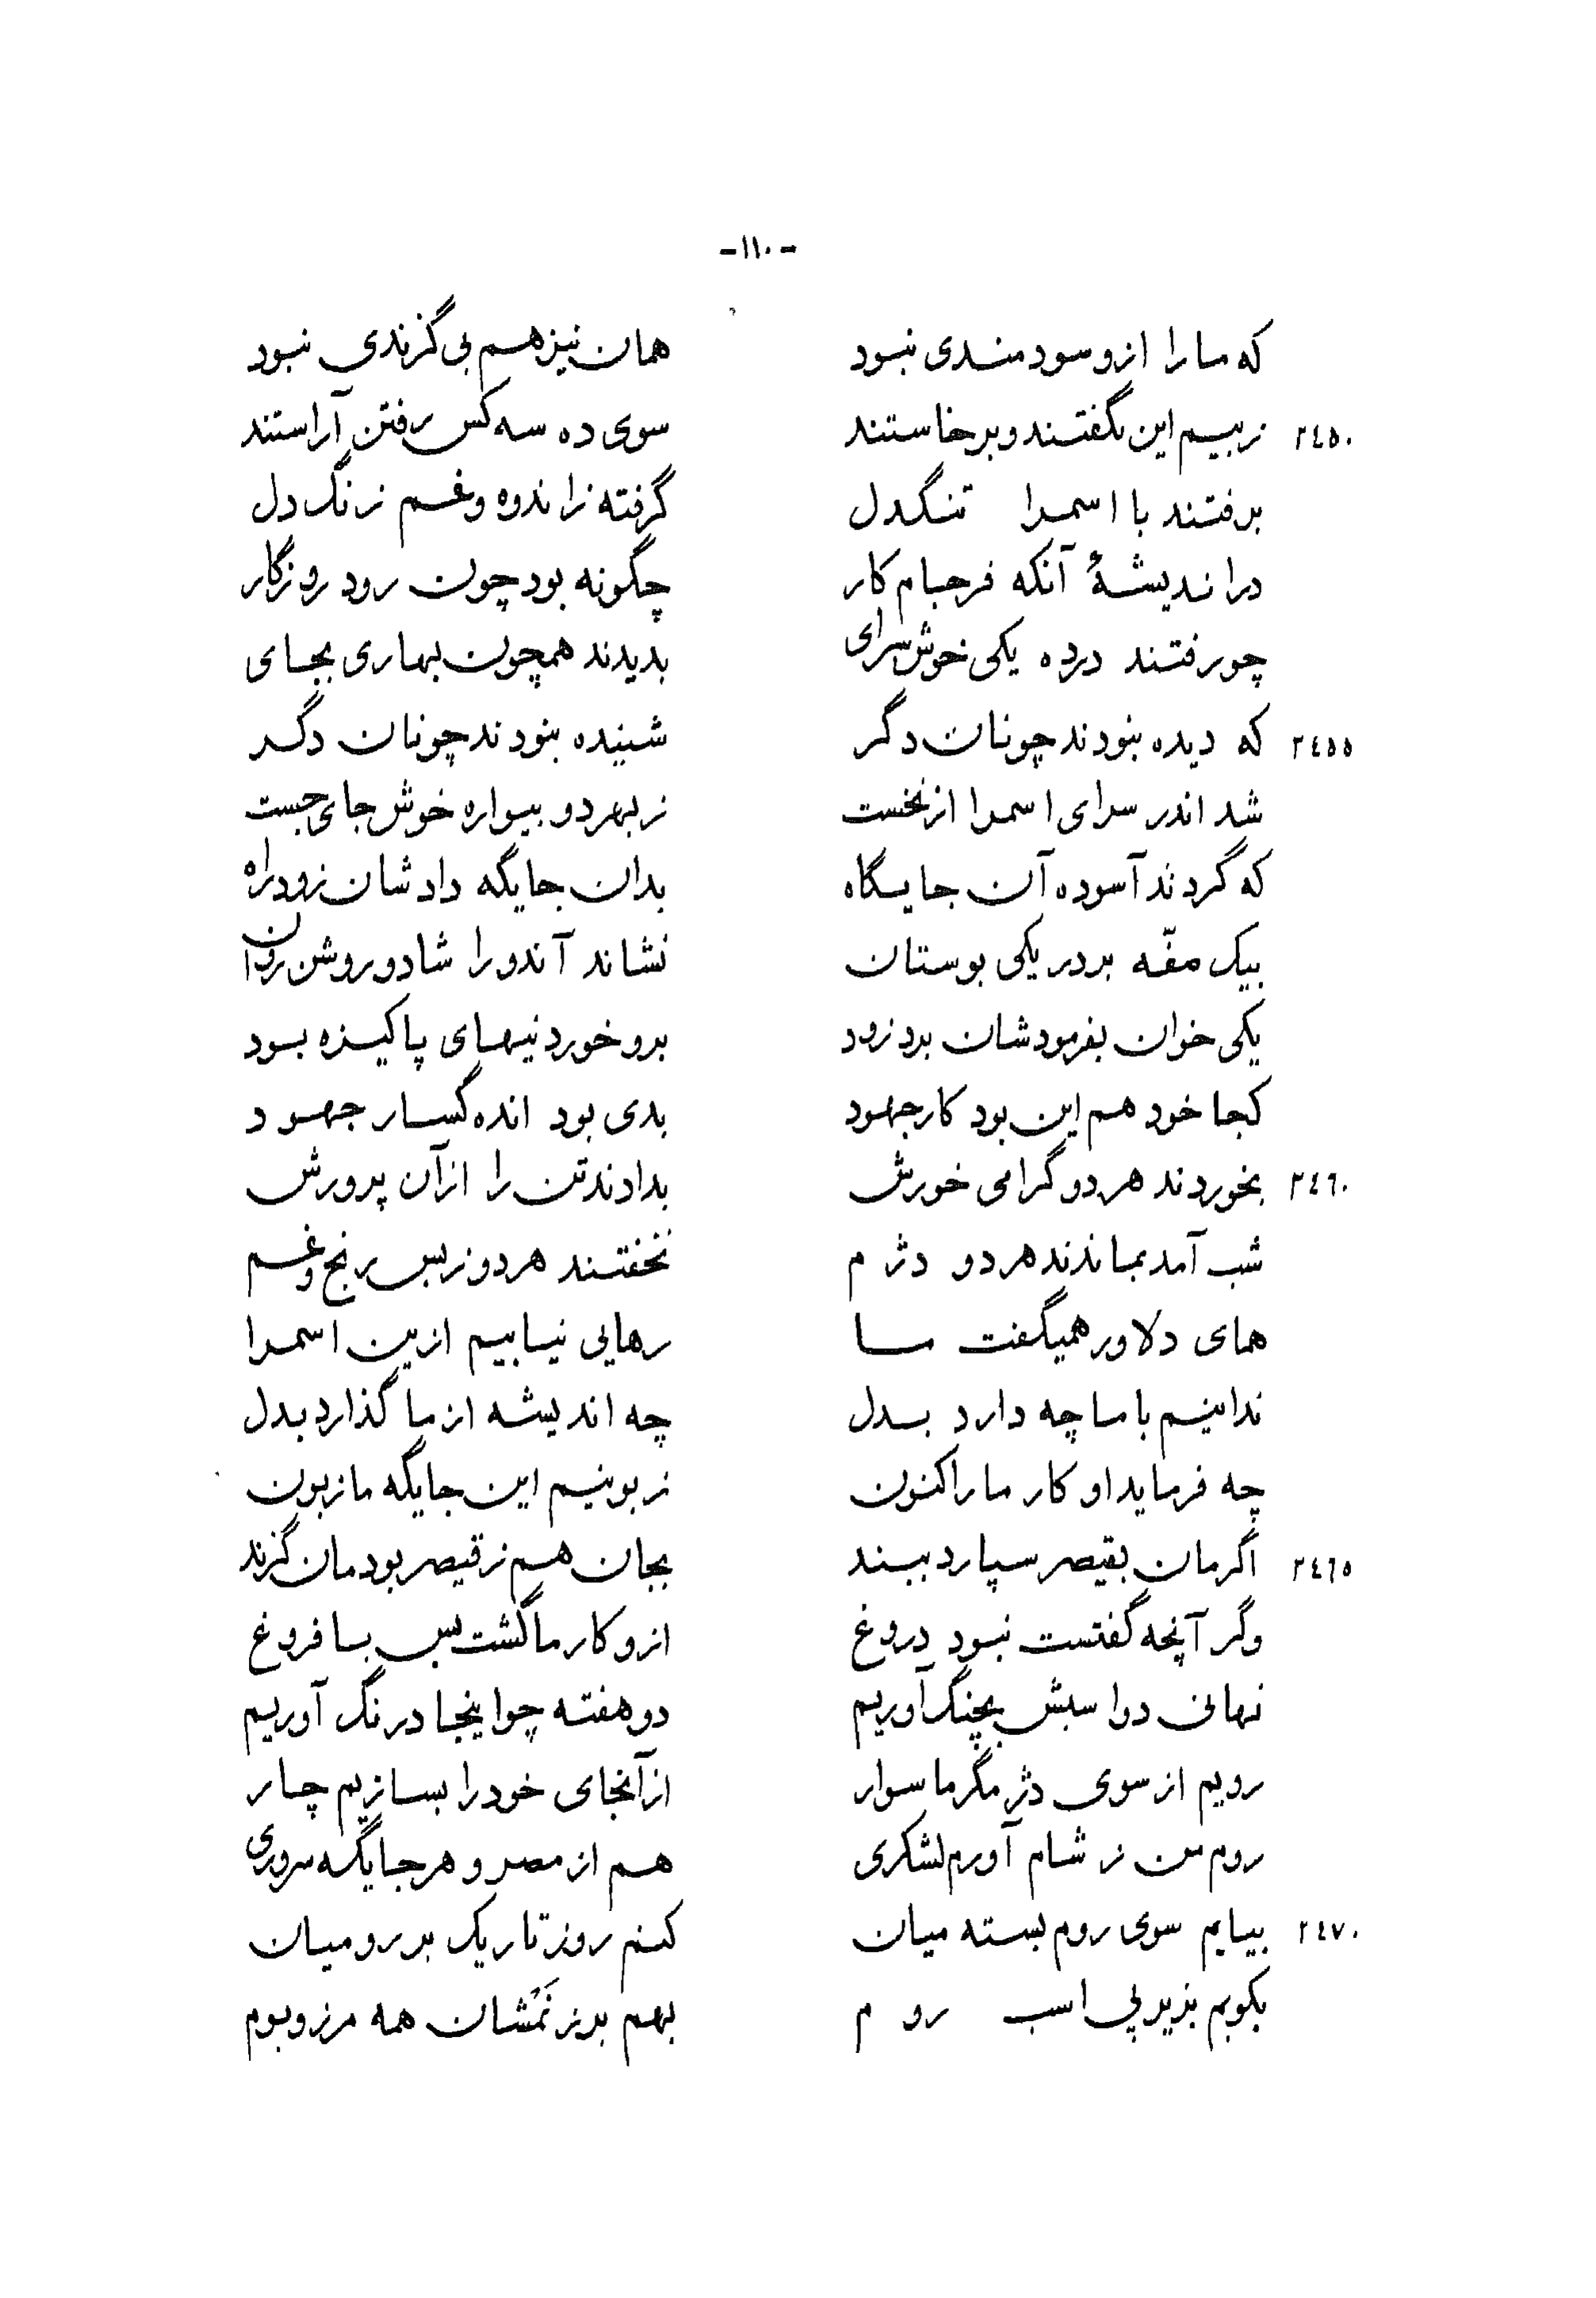 -۱۱۰-
که ما را ازو سودمندی نبود همان نیز هم بی گزندی نبود
۲٤۵۰ ز بیم این بگفتند و برخاستند سوی ده سه کس رفتن آراستند
برفتند با اسمرا تنگدل گرفته ز اندوه و غم زنگ دل
در اندیشهٔ آنکه فرجام کار چگونه بود چون رود روزگار
چو رفتند در ده یکی خوش سرای بدیدند همچون بهاری بجای
۲٤۵۵ که دیده نبودند چونان دگر شنیده نبودند چونان دگر
شد اندر سرای اسمرا از نخست ز بهر دو بیواره خوش جای جست
که گردند آسوده آن جایگاه بدان جایگه دادشان زود راه
بیک صفّه بر در یکی بوستان نشاند آندو را شاد و روشن روان
یکی خوان بفرمودشان برد زود برو خوردنیهای پاکیزه بود
کجا خود هم این بود کار جهود بدی بود انده گسار جهود
۲٤٦۰ بخوردند هر دو گرامی خورش بدادند تن را از آن پرورش
شب آمد بماندند هر دو دژم نخفتند هر دو ز بس رنج و غم
همای دلاور همیگفت ما رهایی نیابیم ازین اسمرا
ندانیم با ما چه دارد بدل چه اندیشه از ما گذارد بدل
چه فرماید او کار ما را کنون زبونیم این جایگه ما زبون
۲٤٦۵ اگرمان بقیصر سپارد ببند بجان هم ز قیصر بودمان گزند
وگر آنچه گفتست نبود دروغ ازو کار ما گشت بس با فروغ
نهانی دو اسبش بچنگ آوریم دو هفته چو اینجا درنگ آوریم
رویم از سوی دژ مگر ما سوار از آنجای خود را بسازیم چار
روم من ز شام آورم لشکری هم از مصر و هر جایگه سروری
۲٤۷۰ بیایم سوی روم بسته میان کنم روز تاریک بر رومیان
بکوبم بزیر پی اسب روم بهم برزنمشان همه مرز و بوم